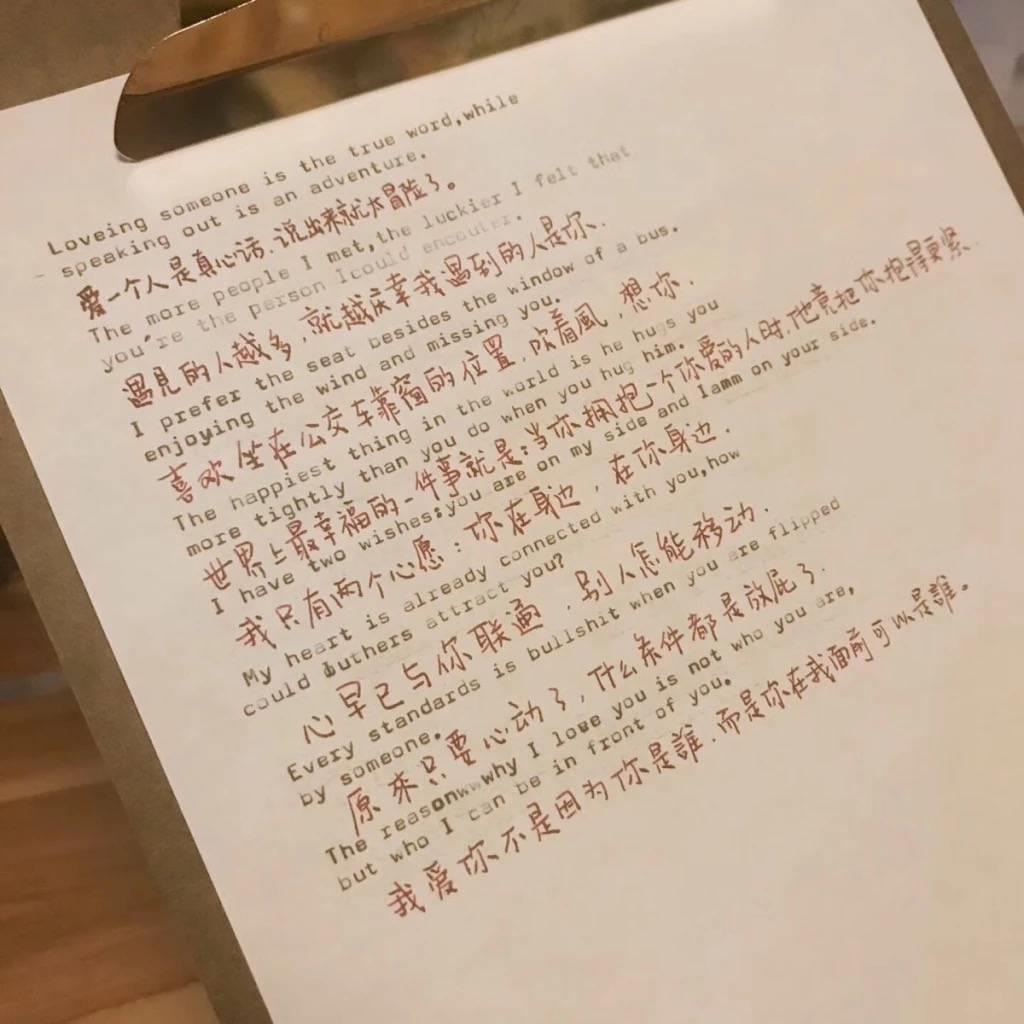 Loveing someone is the true word,while
- speaking out is an adventure.
爱一个人是真心话.说出来就大冒险了。
The more people I met,the luckier I felt that
you're the person Icould encouter.
遇見的人越多,就越庆幸我遇到的人是你.
I prefer the seat besides the window of a bus.
enjoying the wind and missing you.
喜欢坐在公交车靠窗的位置,吹着風,想你.
The happiest thing in the world is he hugs you
more tightly than you do when you hug him.
世界上最幸福的一件事就是:当你拥抱一个你爱的人时,他竟把你抱得更紧.
I have two wishes:you are on my side and Iamm on your side.
我只有两个心愿:你在身边,在你身边.
My heart is already connected with you,how
could outhers attract you?
心早已与你联通,别人怎能移动.
Every standards is bullshit when you are flipped
by someone.
原来只要心动了,什么条件都是放屁了.
The reasonwwwhy I love you is not who you are,
but who I can be in front of you.
我爱你不是因为你是誰.而是你在我面前可以是誰。